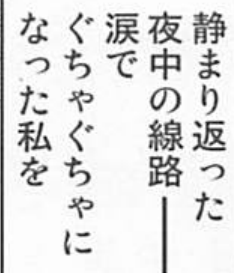 静まり返った
夜中の線路――
涙で
ぐちゃぐちゃに
なった私を